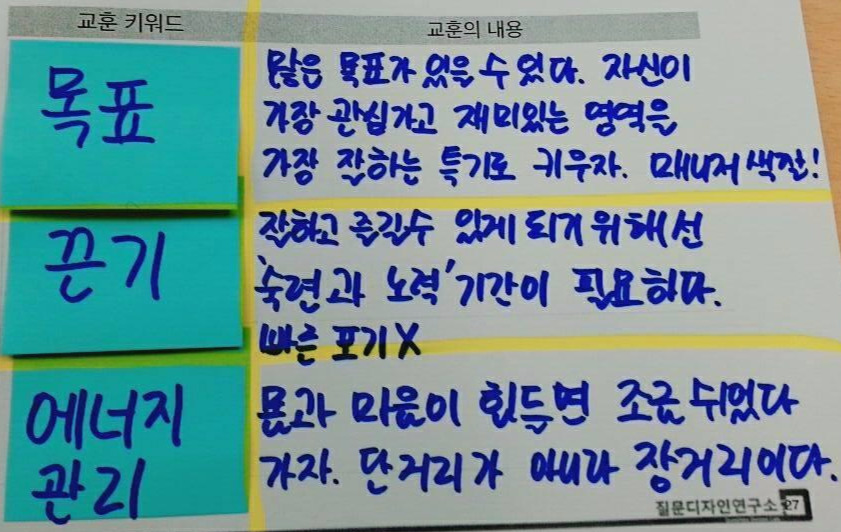 교훈 키워드
교훈의 내용
목표
많은 목표가 있을 수 있다. 자신이
가장 관심가고 재미있는 영역을
가장 잘하는 특기로 키우자. 매니저 색깔!
끈기
잘하고 즐길수 있게 되기 위해선
'숙련과 노력' 기간이 필요하다.
빠른 포기 X
에너지
관리
몸과 마음이 힘들면 조금 쉬었다
가자. 단거리가 아니라 장거리이다.
질문디자인연구소 27